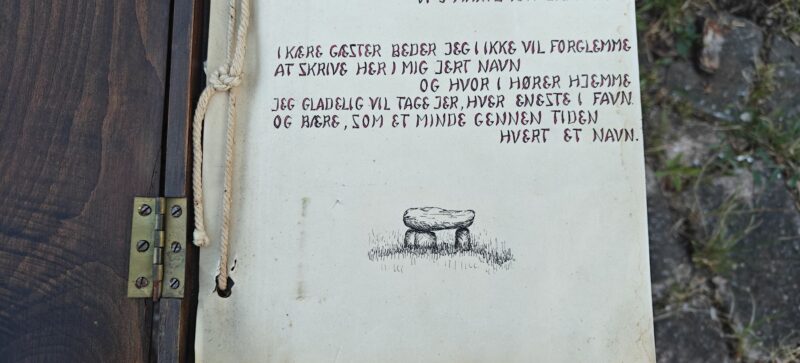 I KÆRE GÆSTER BEDER JEG I IKKE VIL FORGLEMME
AT SKRIVE HER I MIG JERT NAVN
OG HVOR I HØRER HJEMME
JEG GLADELIG VIL TAGE JER, HVER ENESTE I FAVN.
OG BÆRE, SOM ET MINDE GENNEN TIDEN
HVERT ET NAVN.